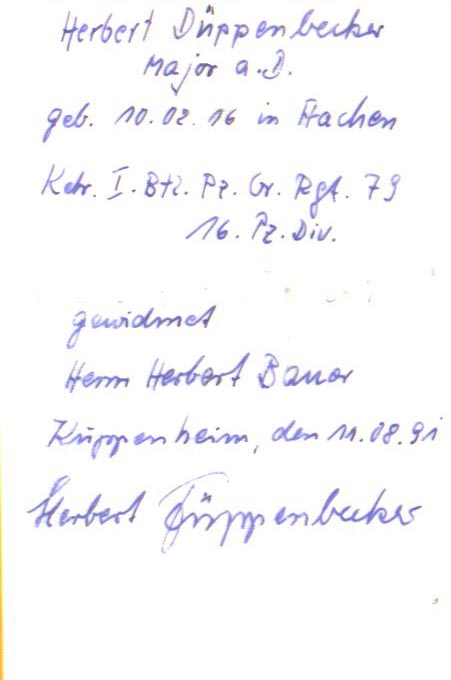 Herbert Düppenbecker
Major a.D.
geb. 10.02.16 in Aachen
Kdr. I. Btl. Pz. Gr. Rgt. 79
16. Pz. Div.
gewidmet
Herrn Herbert Bauer
Kuppenheim, den 11.08.91
Herbert Düppenbecker